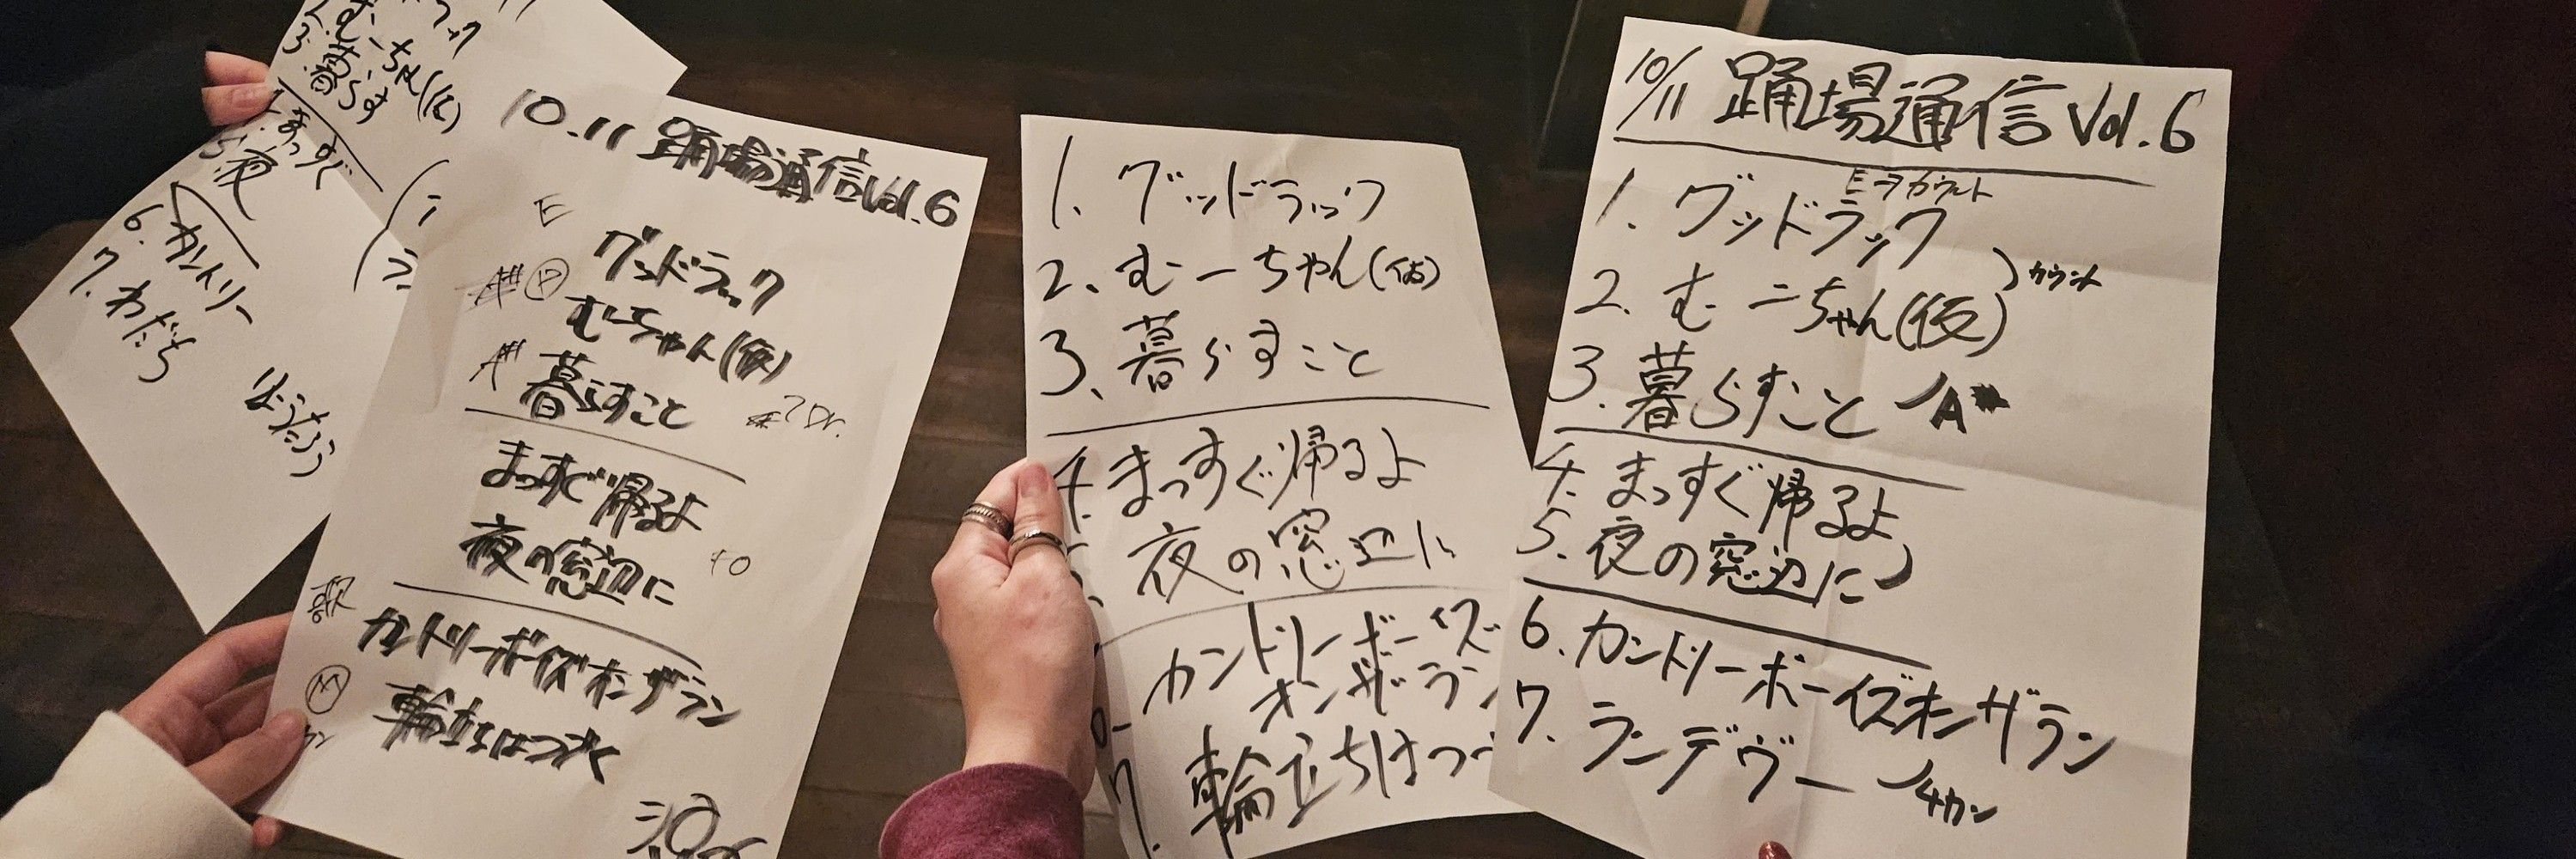 2.むーちゃん(仮)
3.暮らす
4.まっすぐ
5.夜
6.カントリー
7.わだち
10.11 踊場通信Vol.6
E
グッドラック
むーちゃん(仮)
A# 暮らすこと
まっすぐ帰るよ
夜の窓辺に
歌
カントリーボーイズオンザラン
M
輪立ちはつづく
1、グッドラック
2、むーちゃん(仮)
3、暮らすこと
4.まっすぐ帰るよ
夜の窓辺に
カントリーボーイズ
オンザラン
7.輪立ちはつづ
10/11 踊場通信 Vol.6
Eヲカウント
1.グッドラック
カウント
2.むーちゃん(仮)
3.暮らすこと A
4.まっすぐ帰るよ
5.夜の窓辺に
6.カントリーボーイズオンザラン
7.ランデヴー 4カン